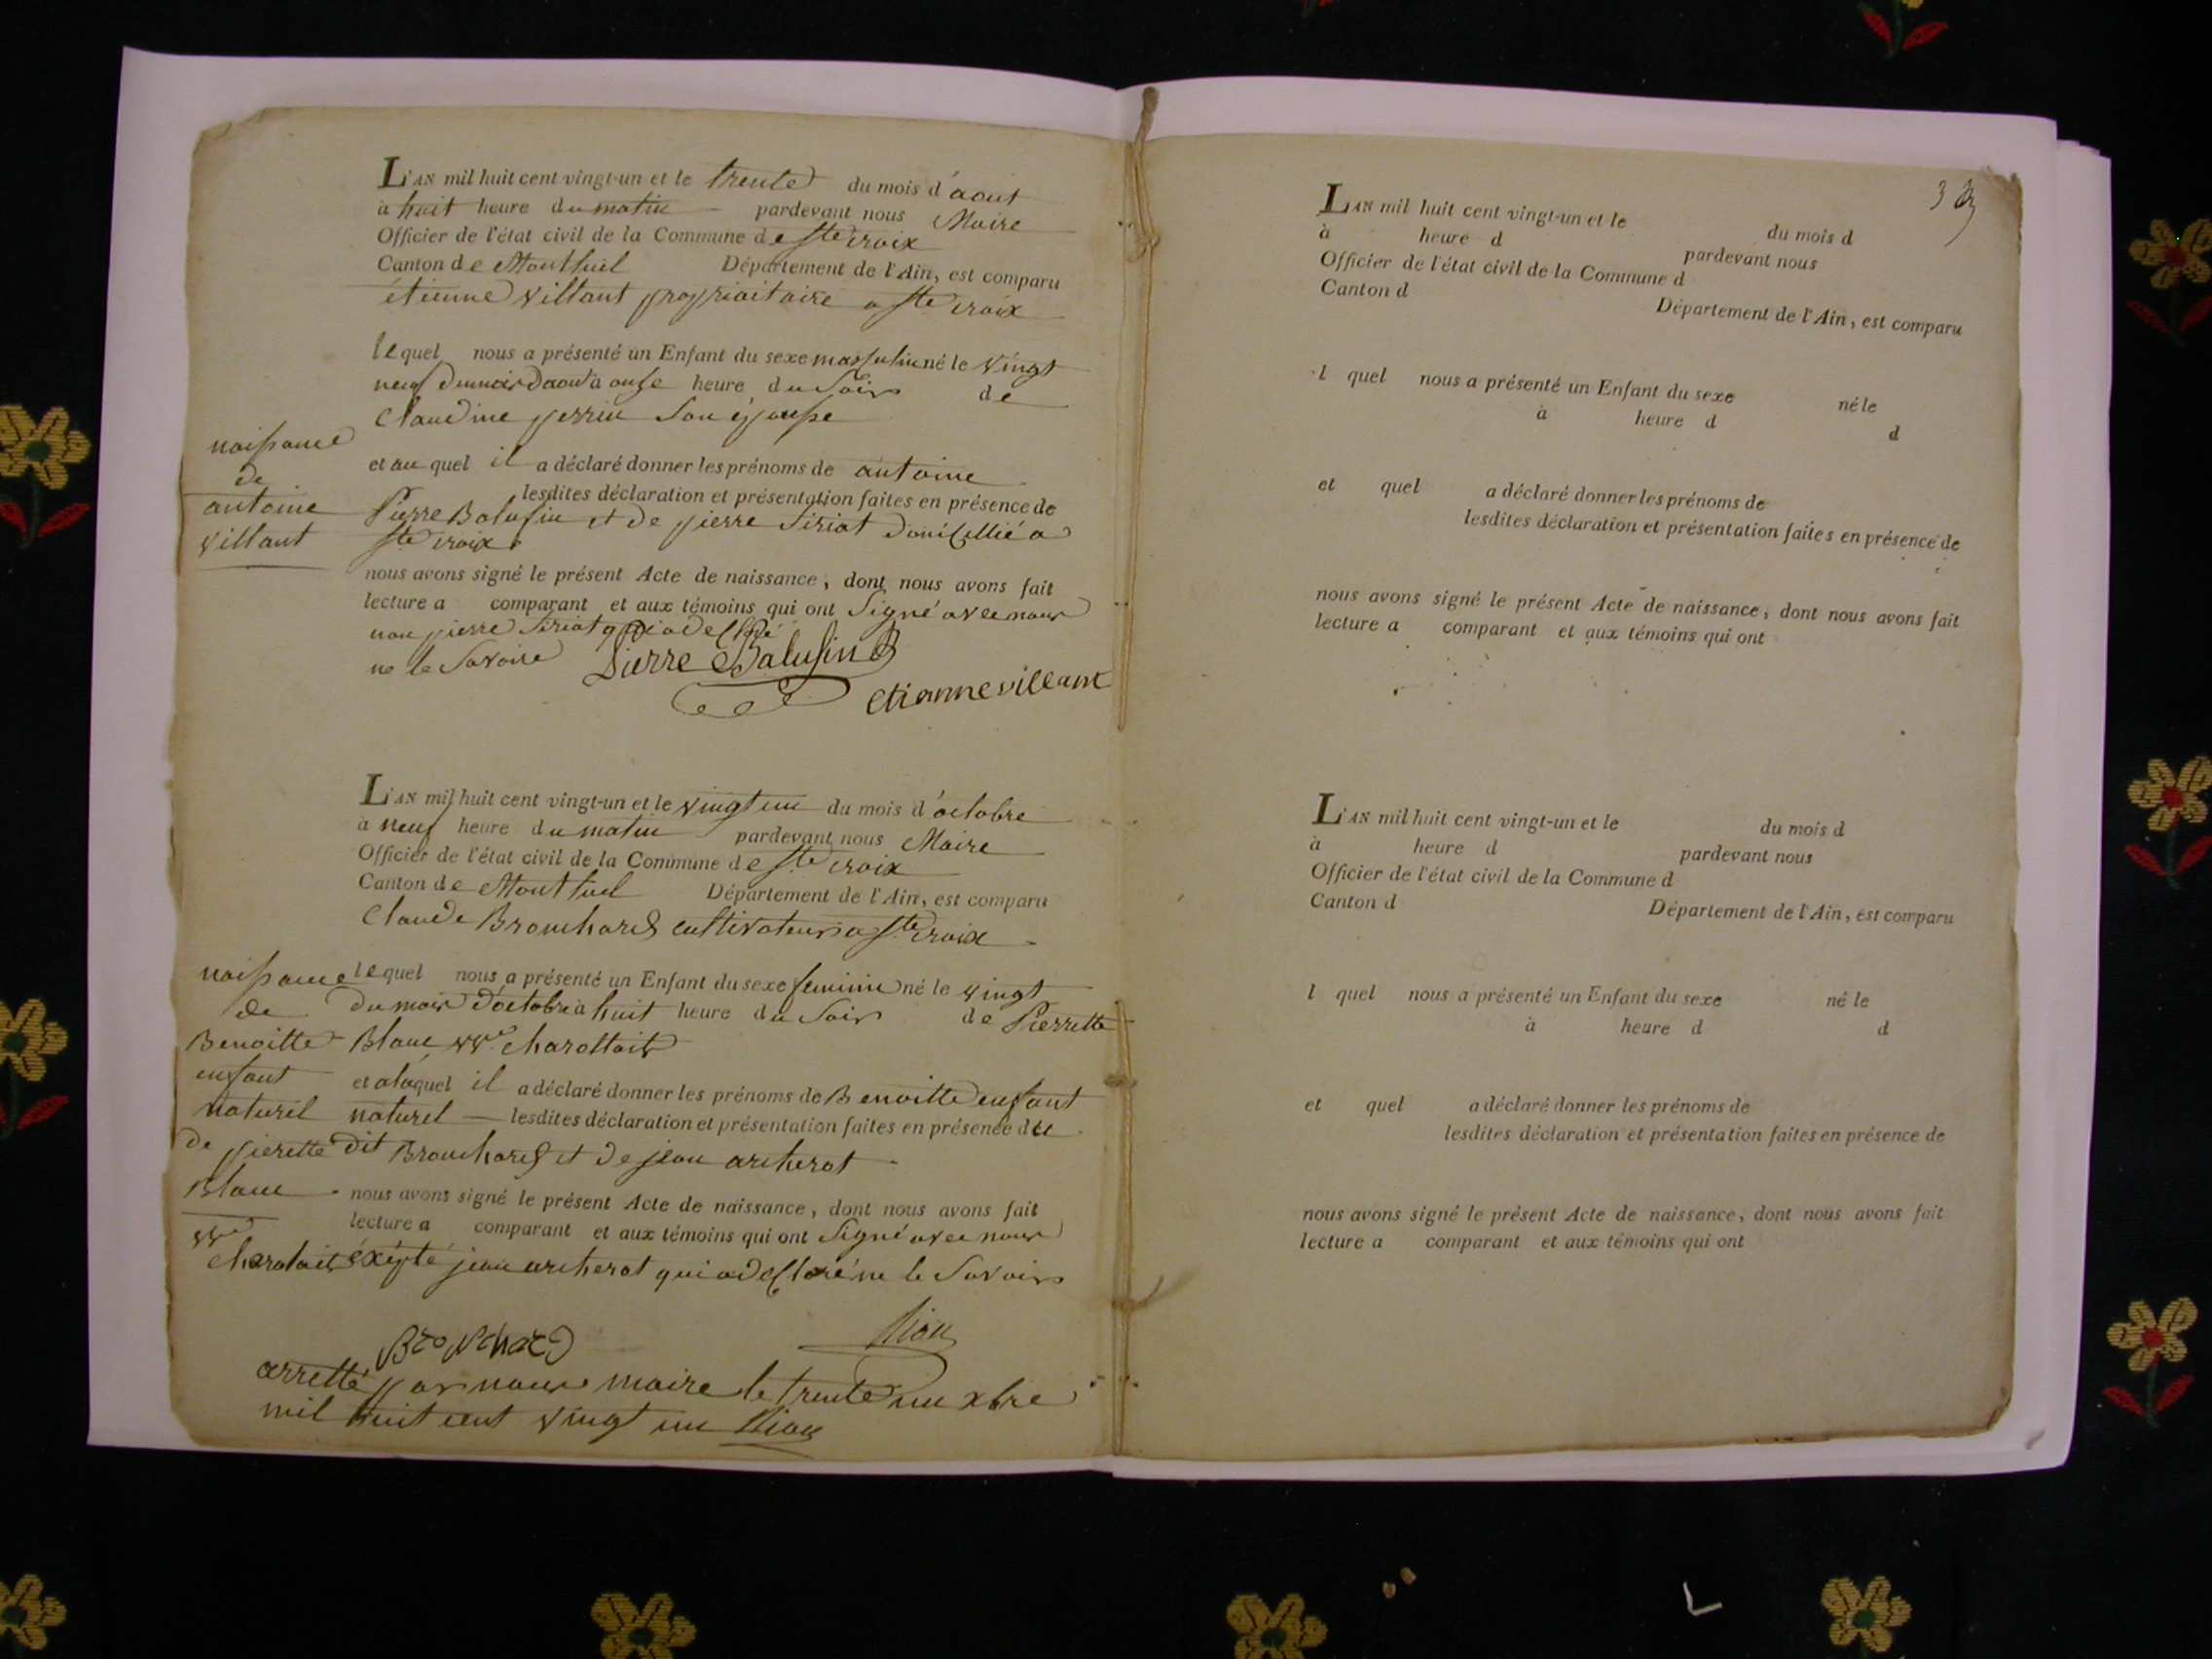 L'AN mil huit cent vingt-un et le trente du mois d'aout
à huit heure du matin pardevant nous Maire
Officier de l'état civil de la Commune de ste croix
Canton de Montluel Département de l'Ain, est comparu
étienne villant propriaitaire a ste croix
lequel nous a présenté un Enfant du sexe masculin né le vingt
neuf du mois daout à onse heure du soir de
Claudine perrin son épouse
naissance
de
antoine
villant
et au quel il a déclaré donner les prénoms de antoine
lesdites déclaration et présentation faites en présence de
Pierre Balufin et de pierre Siriat domicillié a
ste croix
nous avons signé le présent Acte de naissance, dont nous avons fait
lecture a comparant et aux témoins qui ont signé avec nous
non pierre Siriat qui a declaré
ne le Savoir
Pierre Balufin
etianne villant
L'AN mil huit cent vingt-un et le vingt un du mois d'octobre
à neuf heure du matin pardevant nous Maire
Officier de l'état civil de la Commune de ste croix
Canton de Montluel Département de l'Ain, est comparu
Claude Brouchard cultivateur a ste croix
naissance
de
Benoitte
enfant
naturel
de pierette
Blanc
vve
charolait
lequel nous a présenté un Enfant du sexe feminin né le vingt
du mois d'octobre à huit heure du soir de Pierrette
Blanc vve charottait
et alaquel il a déclaré donner les prénoms de Benoitte enfant
naturel lesdites déclaration et présentation faites en présence du
dit Brouchard et de jean archerat
nous avons signé le présent Acte de naissance, dont nous avons fait
lecture a comparant et aux témoins qui ont signé avec nous
éxépté jean archerat qui a declaré ne le savoir
Brouchard
arretté par nous maire le trente un xbre
mil huit cent vingt un
L'AN mil huit cent vingt-un et le du mois d
à heure d pardevant nous
Officier de l'état civil de la Commune d
Canton d Département de l'Ain, est comparu
l quel nous a présenté un Enfant du sexe né le
à heure d d
et quel a déclaré donner les prénoms de
lesdites déclaration et présentation faites en présence de
nous avons signé le présent Acte de naissance, dont nous avons fait
lecture a comparant et aux témoins qui ont
L'AN mil huit cent vingt-un et le du mois d
à heure d pardevant nous
Officier de l'état civil de la Commune d
Canton d Département de l'Ain, est comparu
l quel nous a présenté un Enfant du sexe né le
à heure d d
et quel a déclaré donner les prénoms de
lesdites déclaration et présentation faites en présence de
nous avons signé le présent Acte de naissance, dont nous avons fait
lecture a comparant et aux témoins qui ont